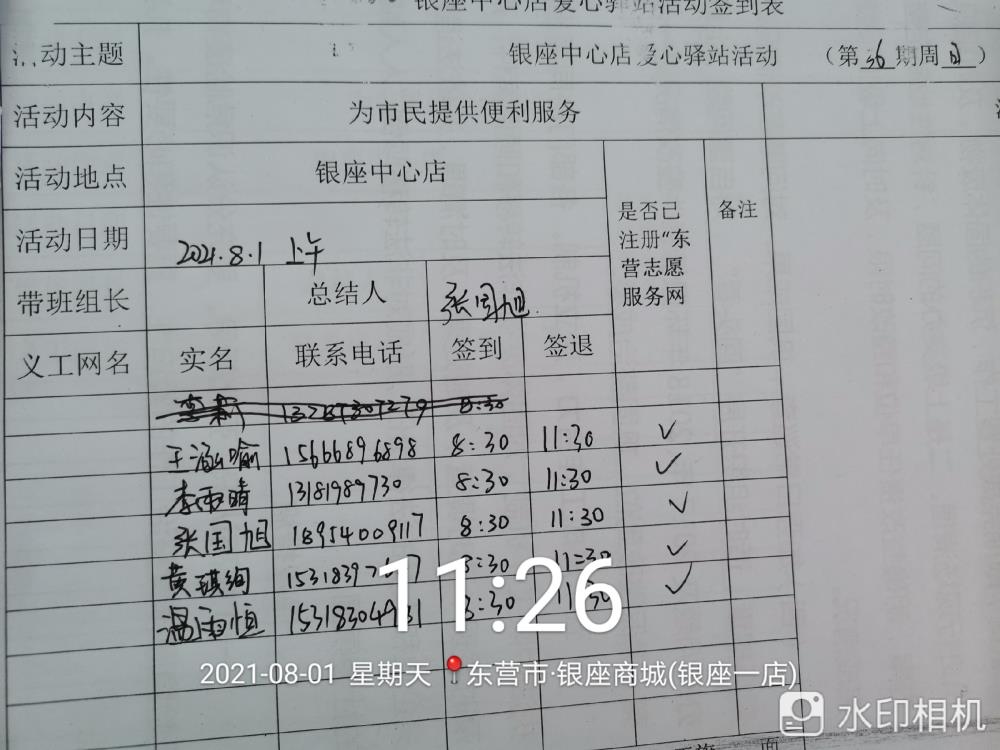 银座中心店爱心驿站活动签到表
活动主题 银座中心店爱心驿站活动 （第36期周日）
活动内容 为市民提供便利服务
活动地点 银座中心店
是否已注册“东营志愿服务网
备注
活动日期 2021.8.1 上午
带班组长 总结人 张国旭
义工网名 实名 联系电话 签到 签退
8:30
王涵喻 15666896898 8:30 11:30 ✓
李雨晴 13181989730 8:30 11:30 ✓
张国旭 18954009117 8:30 11:30 ✓
黄琪绚 8:30 11:30 ✓
温雨恒 8:30 11:30 ✓
11:26
2021-08-01 星期天 东营市·银座商城(银座一店)
水印相机